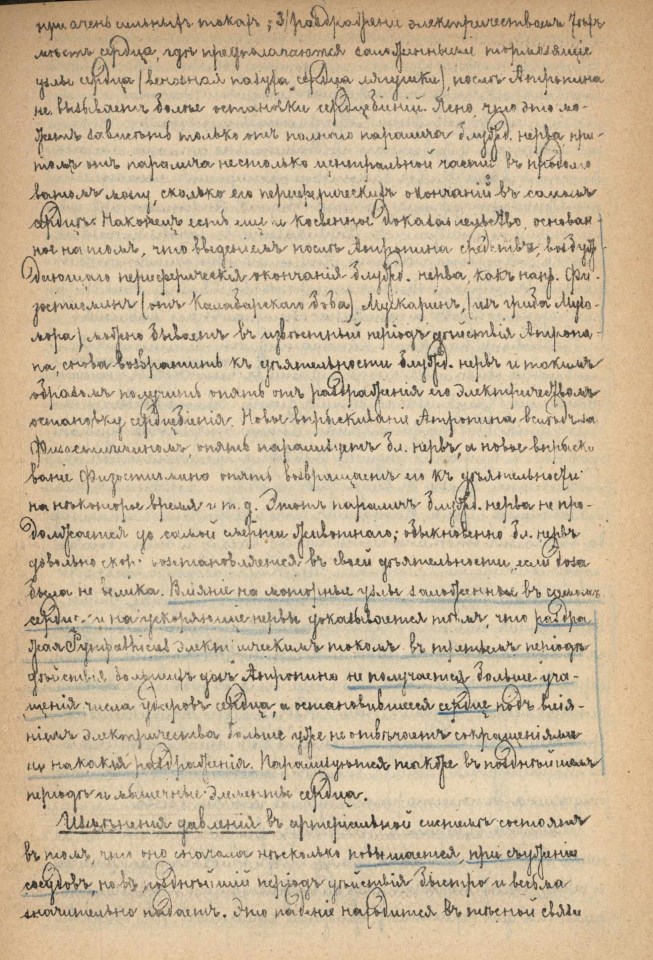 при очень сильныхъ токахъ; 3/ раздраженіе электричествомъ тѣхъ
мѣстъ сердца, гдѣ предполагаются заложенными тормозящіе
узлы сердца (венозная пазуха сердца лягушки), послѣ Атропина
не вызываетъ болѣе остановки сердцебіній. Ясно, что это мо-
жетъ зависѣть только отъ полнаго паралича блужд. нерва при-
томъ отъ паралича не столько центральной части въ продолго
ватомъ мозгу, сколько его периферическихъ окончаній въ самомъ
сердцѣ. Наконецъ есть еще и косвенное доказательство, основан
ное на томъ, что введеніемъ послѣ Атропина средствъ, возбуж
дающаго периферическія окончанія блужд. нерва, какъ напр. Фи-
зостигминъ (отъ Калабарскаго боба) Мускаринъ, (изъ гриба Мухо-
мора) можно бываетъ въ извѣстный періодъ дѣйствія Атропи-
на, снова возвратить къ дѣятельности блужд. нервъ и такимъ
образомъ получить опять отъ раздраженія его электричествомъ
остановку сердцебіенія. Новое впрыскиваніе Атропина вслѣдъ за
Физостигминомъ, опять парализуетъ бл. нервъ, а новое впрыски
ваніе Физостигмина опять возвращаетъ его къ дѣятельности
на нѣкоторое время и т. д. Этотъ параличъ блужд. нерва не про-
должается до самой смерти животнаго; обыкновенно бл. нервъ
довольно скоро возстановляется въ своей дѣятельности, если доза
была не велика. Вліяніе на моторные узлы заложенные въ самомъ
сердцѣ и на ускоряющіе нервы доказывается тѣмъ, что раздра
жая Sympathicus электрическимъ токомъ въ третьемъ періодѣ
дѣйствія большихъ дозъ Атропина не получается больше уча-
щенія числа ударовъ сердца, а остановившееся сердце подъ влія-
ніемъ электричества больше уже не отвѣчаетъ сокращеніями
ни на какія раздраженія. Парализуются также въ позднѣйшемъ
періодѣ и мышечные элементы сердца.
Измѣненія давленій въ артеріальной системѣ состоятъ
въ томъ, что оно сначала нѣсколько повышается, при съуженіе
сосудовъ, но въ позднѣйшій періодъ дѣйствія быстро и весьма
значительно падаетъ. Это паденіе находится въ тѣсной связи